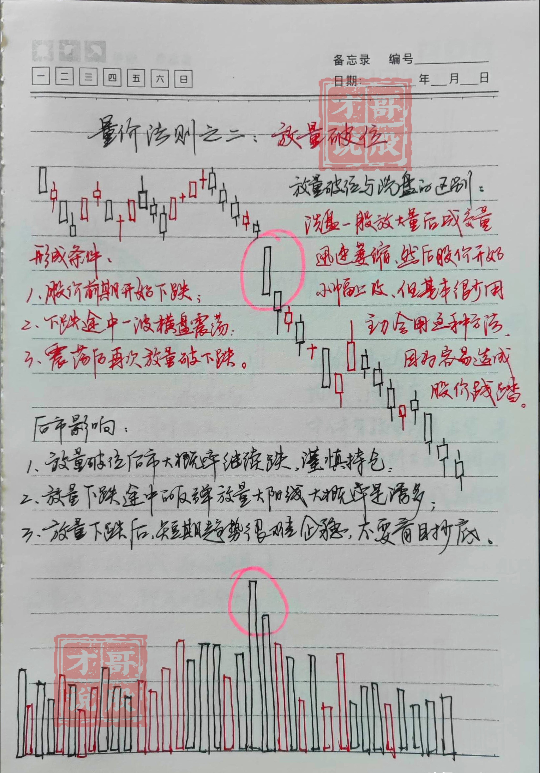 备忘录 编号
一 二 三 四 五 六 日
日期: 年 月 日
才哥
说股
量价法则之二:放量破位
放量破位与洗盘的区别:
洗盘一般放大量后成交量
迅速萎缩,然后股价开始
小幅上攻,但基本很少用
主力会用这种方法,
因为容易造成
股价践踏。
形成条件:
1、股价前期开始下跌;
2、下跌途中一波横盘震荡;
3、震荡后再次放量破下跌。
后市影响:
1、放量破位后市大概率继续跌,谨慎持仓;
2、放量下跌途中的反弹放量大阳线大概率是诱多;
3、放量下跌后,短期趋势很难企稳,不要盲目抄底。
才哥
说股